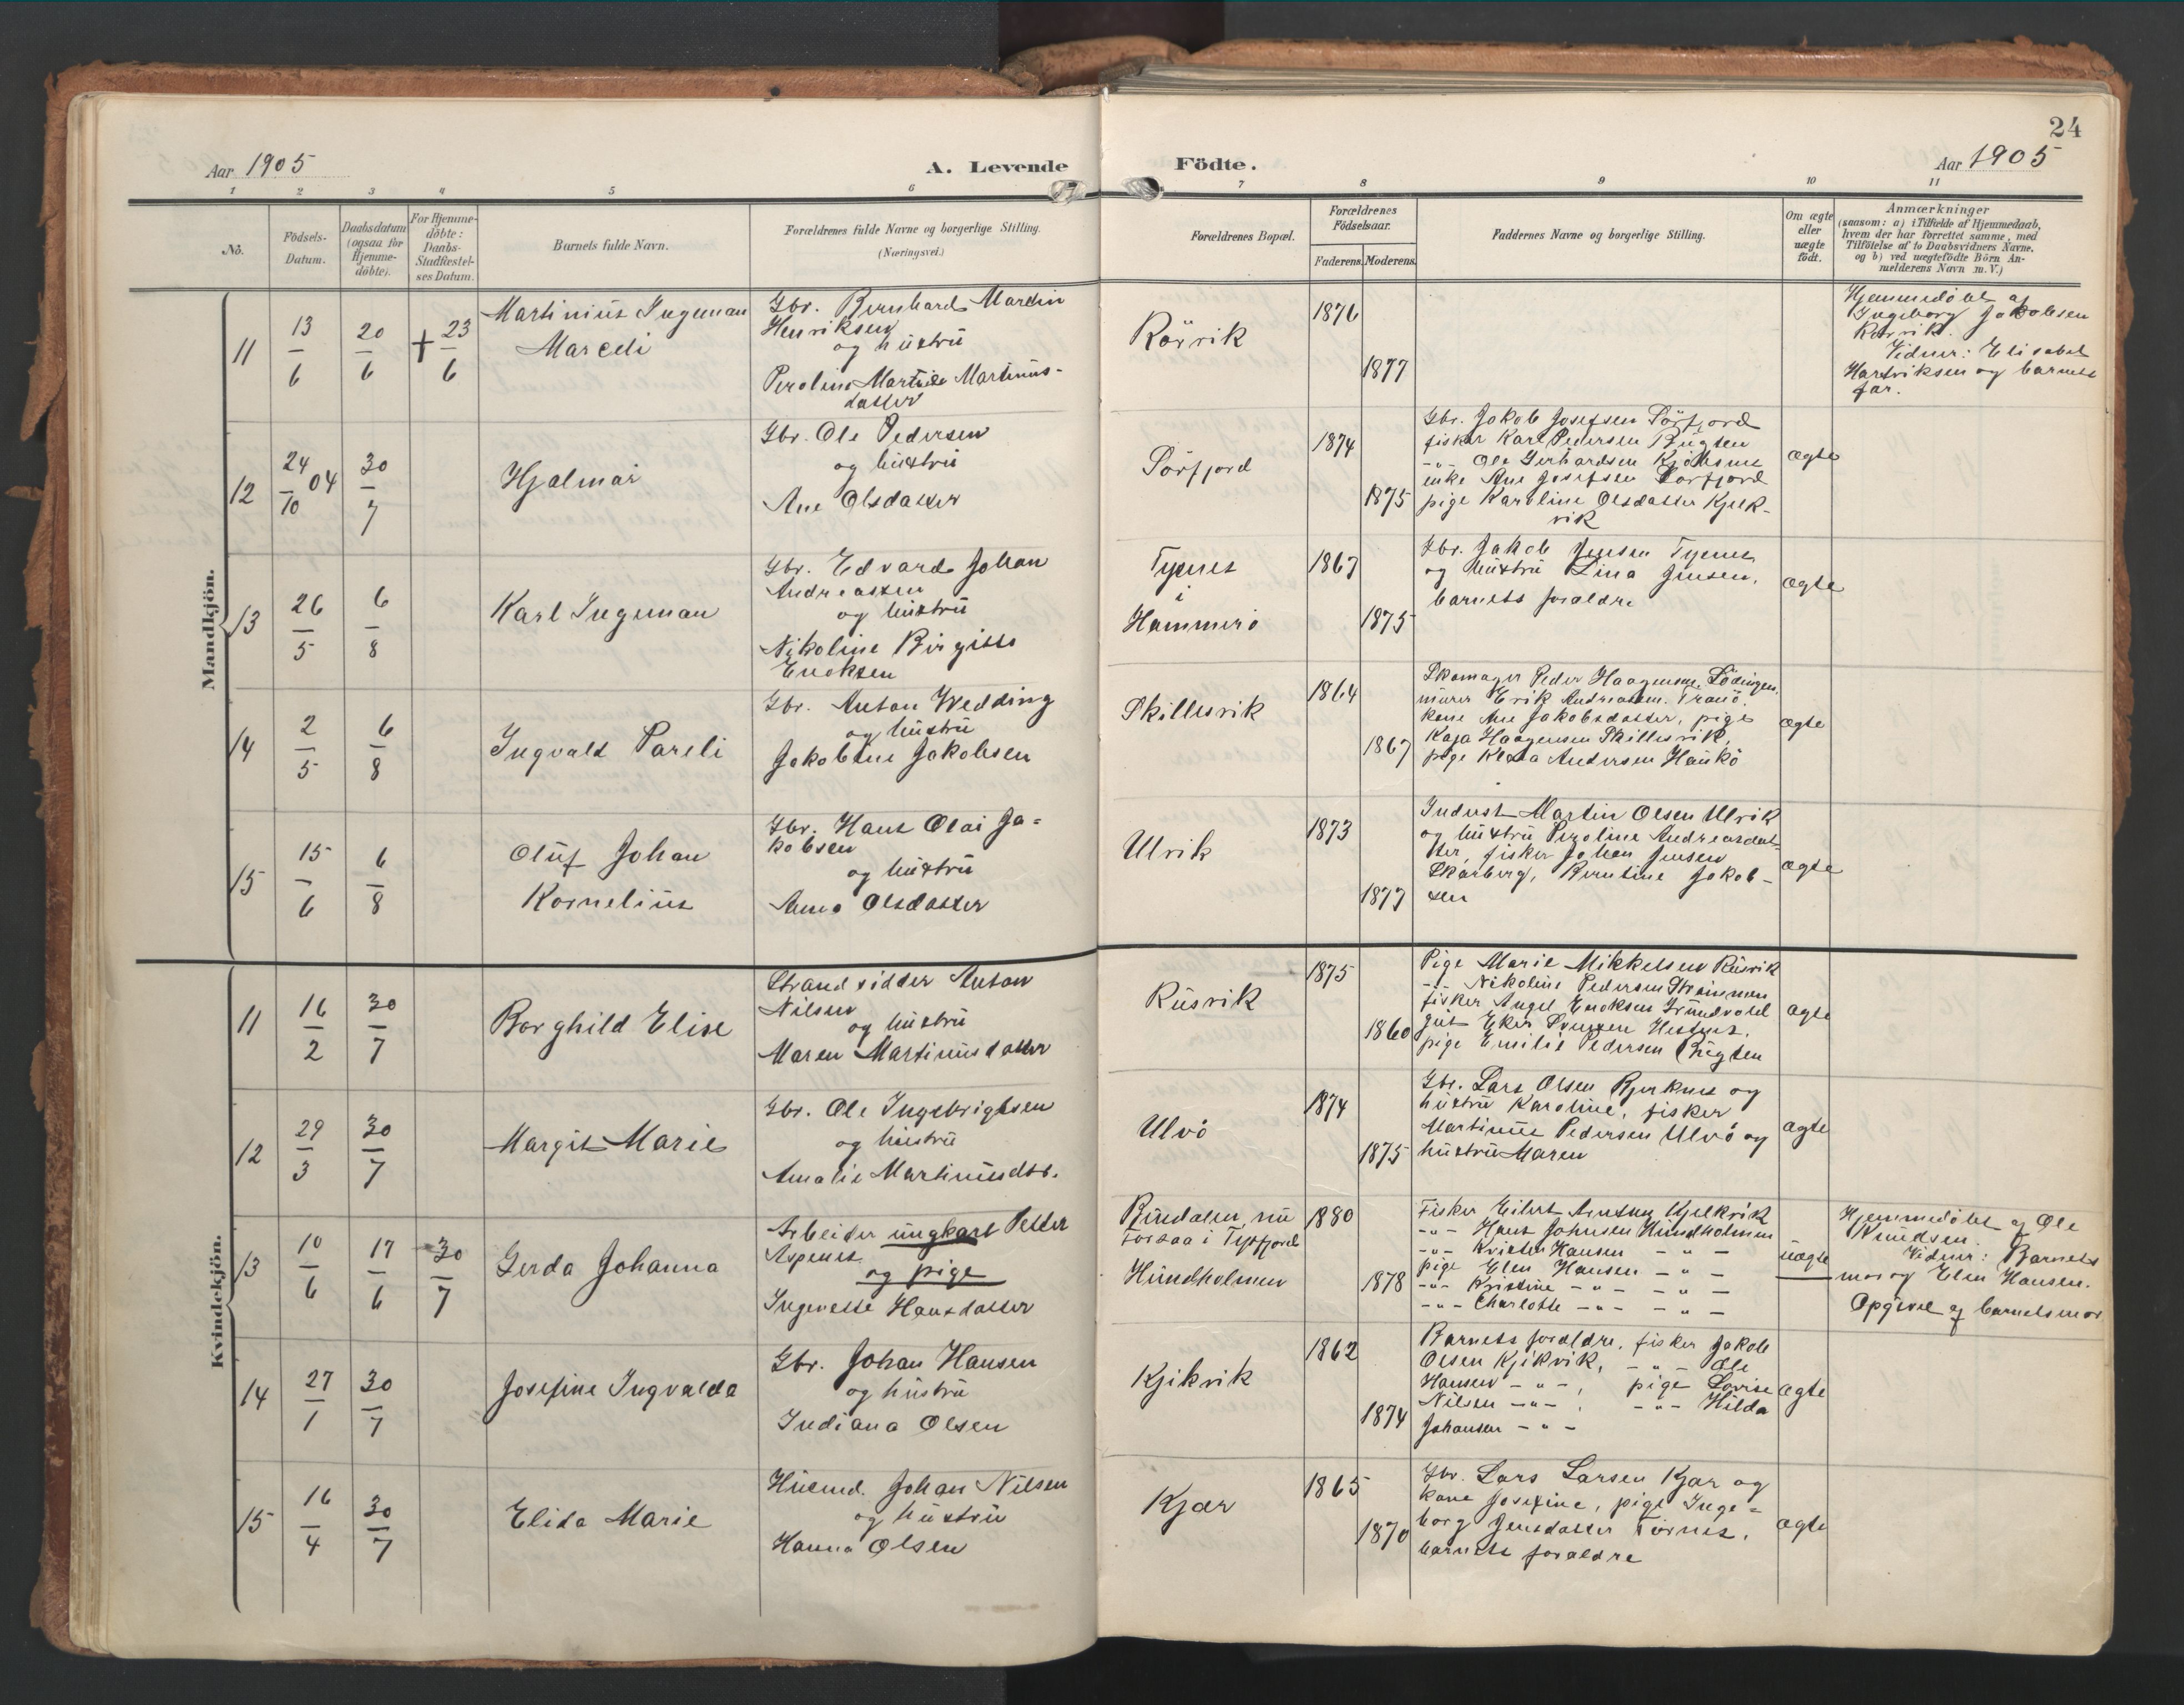 24
Aar 1905
A. Levende
Födte.
Aar 1905
1 2 3 4 5 6 7 8 9 10 11
Nö.
Födsels-
Datum.
Daabsdatum
(ogsaa for
Hjemme-
döbte).
For Hjemme-
döbte:
Daabs-
Stadfæstel-
ses Datum.
Barnets fulde Navn.
Forældrenes fulde Navne og borgerlige Stilling.
(Næringsvei.)
Forældrenes Bopæl.
Forældrenes
Födselsaar.
Faderens. Moderens.
Faddernes Navne og borgerlige Stilling.
Om ægte
eller
uægte
födt.
Anmærkninger
(saasom: a) i Tilfælde af Hjemmedaab,
hvem der har forrettet samme, med
Tilföielse af to Daabsvidners Navne.
og b) ved uægtefödte Börn An-
melderens Navn m. V.)
Mandkjön.
11
13/6
20/6
+ 23/6
Martinius Ingeman
Mareli
Gbr. Bernhard Martin
Henriksen
og hustru
Peroline Martide Martinus-
datter
Rörvik
1876
1877
Hjemmedöbt af
Ingeborg Jakobsen
Rörvik.
Vidner: Elisabet
Hartviksen og barnets
far.
12
24/10 04
30/7
Hjalmar
Gbr. Ole Pedersen
og hustru
Ane Olsdatter
Sörfjord
1874
1875
Gbr. Jakob Josefsen Sörfjord
fisker Karl Pedersen Bugten
-"- Ole Gerhardsen
enke Ane Josefsen Sörfjord
pige Karoline Olsdatter Kjelk-
vik
ægte
13
26/5
6/8
Karl Ingeman
Gbr. Edvard Johan
Andreassen
og hustru
Nikoline Birgitte
Enoksen
Tysnes
i
Hammerö
1867
1875
Gbr. Jakob Jensen Tysnes
og hustru Lina Jensen,
barnets forældre
ægte
14
2/5
6/8
Ingvald Pareli
Gbr. Anton Wedding
og hustru
Jakobine Jakobsen
Skillesvik
1864
1867
Skomager Peder Haagensen, Lödingen,
murer Erik Andreassen. Tranö,
kone Ane Jakobsdatter, pige
Kaja Haagensen Skillesvik,
pige Klara Andersen Haukö
ægte
15
15/6
6/8
Oluf Johan
Kornelius
Gbr. Hans Olai Ja-
kobsen
og hustru
Anna Olsdatter
Ulvik
1873
1877
Inderst Martin Olsen Ulvik
og hustru Peroline Andreasdat-
ter, fisker Johan Jensen
Skarberg, Berntine Jakob-
sen
ægte
Kvindekjön.
11
16/2
30/7
Borghild Elise
Strandsidder Anton
Nilsen
og hustru
Maren Martinusdatter
Rusvik
1875
1860
Pige Marie Mikkelsen Rusvik
-"- Nikoline Pedersen
fisker Angel Enoksen
gut
pige Emilie Pedersen Bugten
ægte
12
29/3
30/7
Margit Marie
Gbr. Ole Ingebrigtsen
og hustru
Amalie Martinusdtr.
Ulvö
1874
1875
Gbr. Lars Olsen Bjerknes og
hustru Karoline, fisker
Martinus Pedersen Ulvö og
hustru Maren
ægte
13
10/6
17/6
30/7
Gerda Johanna
Arbeider ungkarl Petter
Aspenes
og pige
Ingenette Hansdatter
Bindalen, nu
Korsaa i Tysfjord
Hundholmen
1880
1878
Fisker Eilert Arntsen Kjelkvik
-"- Hans Johnsen Hundholmen
-"- Kristen Hansen - " -
pige Elen Hansen - " -
-"- Kristine -"- - " -
-"- Charlotte -"- - " -
uægte
Hjemmedöbt af Ole
Knudsen.
Vidner: Barnets
mor og Elen Hansen.
Opgivet af barnets mor
14
27/1
30/7
Josefine Ingvalda
Gbr. Johan Hansen
og hustru
Indiana Olsen
Kjikvik
1862
1874
Barnets forældre, fisker Jakob
Olsen Kjikvik, -"- Ole
Hansen -"-, pige Lovise
Nilsen -"-, -"- Hilda
Johansen -"-
ægte
15
16/4
30/7
Elida Marie
Husmd. Johan Nilsen
og hustru
Hanna Olsen
Kjær
1865
1870
Gbr. Lars Larsen Kjær og
kone Josefine, pige Inge-
borg Jensdatter Törnes,
barnets forældre
ægte